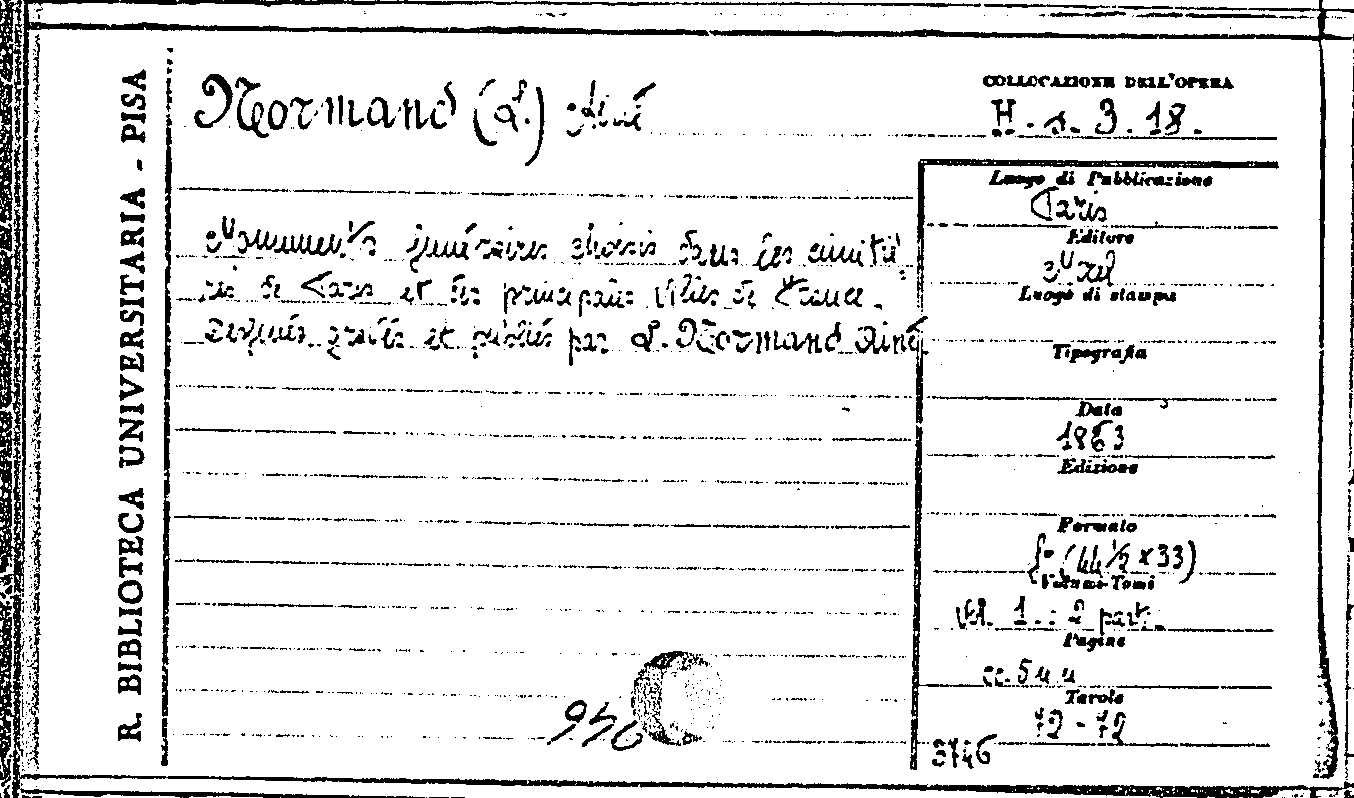 R. BIBLIOTECA UNIVERSITARIA - PISA
Normand (L.) Ainé
COLLOCAZIONE DELL'OPERA
H. s. 3. 18.
Monuments funéraires choisis dans les cimitiè
res de Paris et des principales villes de France.
Dessinés, gravés et publiés par L. Normand Ainé.
Luogo di Pubblicazione
Paris
Editore
Morel
Luogo di stampa
Tipografia
Data
1863
Edizione
Formato
f° (44 1/2 x 33)
Volumi-Tomi
Vol. 1. : 2 part.
Pagine
cc. 5 n n
Tavole
72 - 72
946
3746